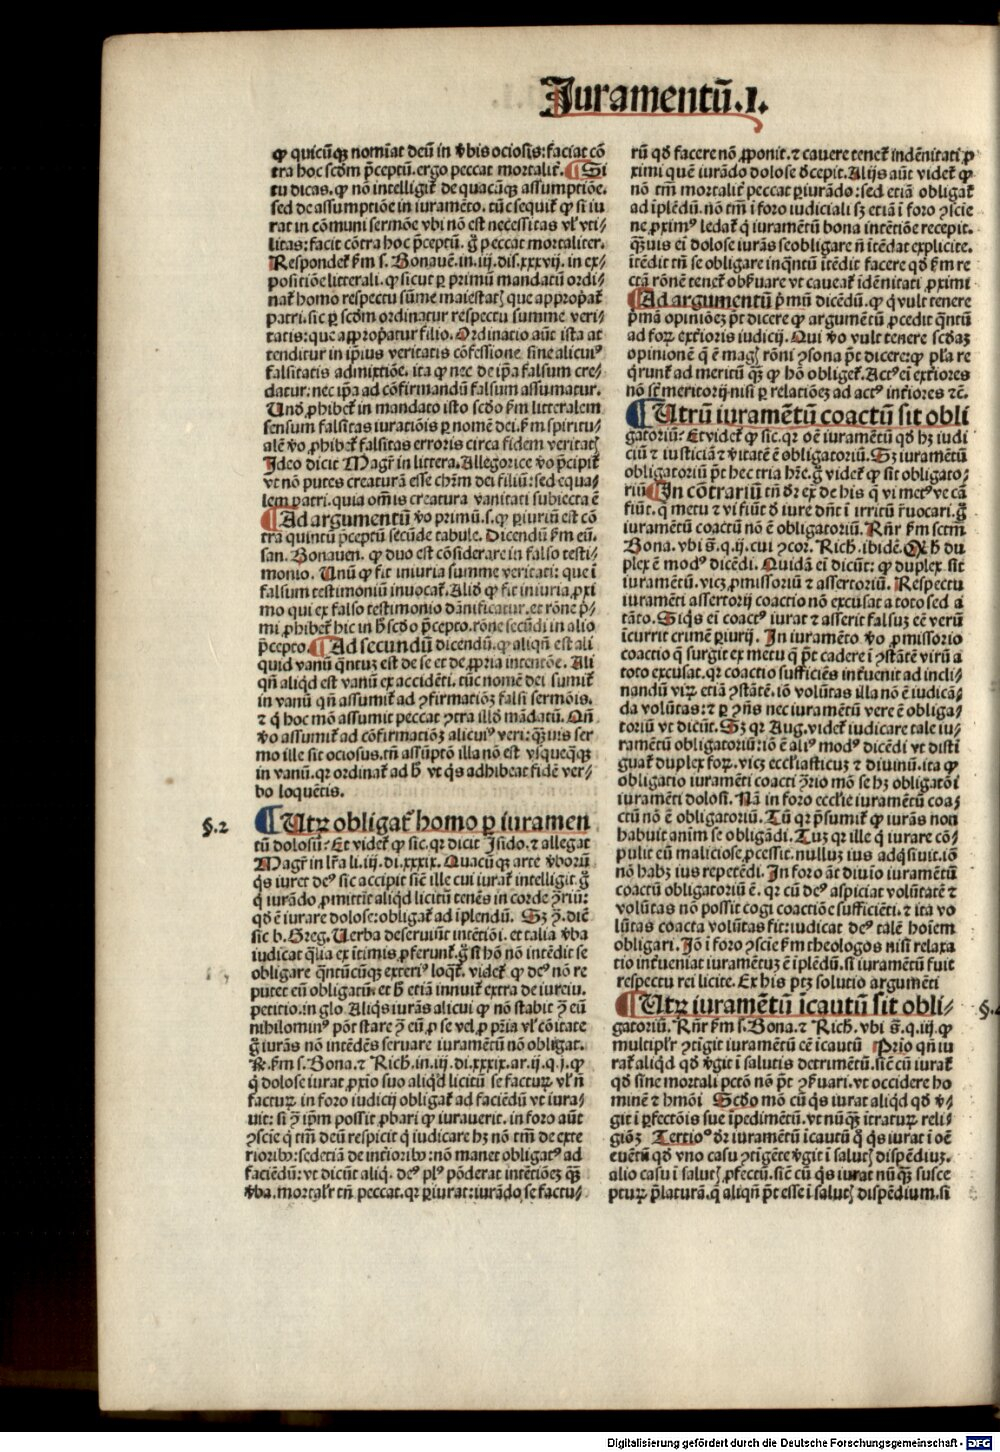 Iuramentū.I.
ꝙ quicūqꝫ nomīat deū in v̄bis ociosis: faciat cō
tra hoc scdm p̄ceptū. ergo peccat mortalit̄. ¶ Si
tu dicas. ꝙ nō intelligit̄ de quacūqꝫ assumptiōe.
sed de assumptiōe in iuramēto. tūc sequit̄ ꝙ si iu
rat in cōmuni sermōe vbi nō est necessitas vl' vti-
litas: facit cōtra hoc p̄ceptū. g̊ peccat mortaliter.
Respondet̄ ẜm s. Bonauē. in. iij. dis. xxxvij. in ex-
positiōe litterali. ꝙ sicut ꝑ primū mandatū ordi-
nat̄ homo respectu sūme maiestatꝭ que appropat̄
patri. sic ꝑ scdm ordinatur respectu summe veri-
tatis: que appropatur filio. Ordinatio aūt ista at
tenditur in ip̄ius veritatis cōfessione. sine alicuiꝰ
falsitatis admixtiōe. ita ꝙ nec de ip̄a falsum cre-
datur: nec ip̄a ad cōfirmandū falsum assumatur.
Unđ ꝓhibet̄ in mandato isto scđo ẜm litteralem
sensum falsitas iuratiōis ꝑ nomē dei. ẜm spiritu-
alē v̊o ꝓhibet̄ falsitas erroris circa fidem veritatꝭ
Ideo dicit Magr̄ in littera. Allegorice v̊o p̄cipit̄
vt nō putes creaturā esse chr̄m dei filiū: sed equa-
lem patri. quia om̄is creatura vanitati subiecta ē
¶ Ad argumentū v̊o primū. s. ꝙ ꝑiuriū est cō
tra quintū p̄ceptū secūde tabule. Dicendū ẜm eū.
san. Bonauen. ꝙ duo est cōsiderare in falso testi-
monio. Unū ꝙ fit iniuria summe veritati: que ī
falsum testimoniū inuocat̄. Aliđ ꝙ fit iniuria ꝓxi
mo qui ex falso testimonio dānificatur. et rōne p̄-
mi ꝓhibet̄ hic in h̄ scđo p̄cepto. rōne secūdi in alio
p̄cepto. ¶ Ad secundū dicendū. ꝙ aliqn̄ est ali
quid vanū q̄ntuꝫ est de se et de ꝓpria intentōe. Ali
qn̄ aliqđ est vanū ex accidēti. tūc nomē dei sumit̄
in vanū qn̄ assumit̄ ad ꝯfirmatiōꝫ falsi sermōis.
⁊ q̇ hoc mō assumit peccat ꝯtra illđ mādatū. Qn̄
v̊o assumit̄ ad cōfirmatiōꝫ alicuiꝰ veri: q̄ꝫuis ser
mo ille sit ociosus. tn̄ assūptō illa nō est vsqueq̄qꝫ
in vanū. qr ordinat̄ ad h̄ vt q̇s adhibeat fidē ver-
bo loquētis.
§.2
¶ Utrꝫ obligat̄ homo ꝑ iuramen
tū dolosū? Et videt̄ ꝙ sic. qr dicit Isido. ⁊ allegat
Magr̄ in lr̄a li. iij. di. xxxix. Quacūqꝫ arte v̄borū
q̇s iuret deꝰ sic accipit sič ille cui iurat̄ intelligit. g̊
q̇ iurādo ꝓmittit aliqđ licitū tenēs in corde ꝯ̄riū:
qđ ē iurare dolose: obligat̄ ad īplendū. Sꝫ ꝯ̄. diē
sic b. Greg. Uerba deseruiūt intētiōi. et talia v̄ba
iudicat q̄lia ex ītimis ꝓferunt̄. g̊ si hō nō intēdit se
obligare q̄ntūcūqꝫ exteriꝰ loqt̄. videt̄ ꝙ deꝰ nō re
putet eū obligatū. et h̄ etiā innuit̄ extra de iureiu.
petitio. in glo Aliq̇s iurās alicui ꝙ nō stabit ꝯ̄ eū
nihilominꝰ pōt stare ꝯ̄ eū ꝓ se vel ꝓ p̄ria vl' cōitate
g̊ iurās nō intēdēs seruare iuramētū nō obligat̄.
R̄. ẜm s. Bona. ⁊ Rich. in. iij. di. xxxix. ar. ij. q. j. ꝙ
q̇ dolose iurat ꝓxio suo aliqđ licitū se facturꝫ vl' n̄
facturꝫ in foro iudicij obligat̄ ad faciēdū vt iura-
uit: si ꝯ̄ ip̄m possit ꝓbari ꝙ iurauerit. in foro aūt
ꝯscīe q̇ tm̄ deū respicit q̇ iudicare hꝫ nō tm̄ de exte
riorib9: sed etiā de intīorib9: nō manet obligatꝰ ad
faciēdū: vt dicūt aliq̇. deꝰ plꝰ pōderat intētiōeꝫ q̄ꝫ
v̄ba. mortalr̄ tn̄ peccat. qr ꝑiurat: iurādo se factu-
rū qđ facere nō ꝓponit. ⁊ cauere tenet̄ indēnitati ꝓ
ximi quē iurādo dolose decepit. Alijs aūt videt̄ ꝙ
nō tm̄ mortalit̄ peccat ꝑiurādo: sed etiā obligat̄
ad īplēdū. nō tm̄ ī foro iudiciali sꝫ etiā ī foro ꝯscie
ne ꝓximꝰ ledat̄ q̇ iuramētū bona intētiōe recepit.
q̄ꝫuis ei dolose iurās se obligare n̄ ītēdat explicite.
ītēdit tn̄ se obligare inq̄ntū ītēdit facere qđ ẜm re
ctā rōnē tenet̄ obẜuare vt caueat̄ idēnitati ꝓximi
¶ Ad argumentū p̄mū dicēdū. ꝙ q̇ vult tenere
p̄mā opiniōeꝫ p̄t dicere ꝙ argumētū ꝓcedit q̄ntū
ad forꝫ exterioris iudicij. Qui v̊o vult tenere scđaꝫ
opinionē q̄ ē magꝭ rōni ꝯsona p̄t dicere: ꝙ pl̄a re
q̇runt̄ ad meritū q̄ꝫ ꝙ hō obliget̄. Actꝰ ei exteriores
nō st̄ meritorij nisi ꝑ relatiōeꝫ ad actꝰ īteriores ⁊c̄.
¶ Utrū iuramētū coactū sit obli
gatoriū? Et videt̄ ꝙ sic. qr oē iuramētū qđ hꝫ iudi
ciū ⁊ iusticiā ⁊ v̄itatē ē obligatoriū. Sꝫ iuramētū
obligatoriū p̄t hec tria hr̄e. g̊ videt̄ ꝙ sit obligato-
riū ¶ In cōtrariū tn̄ dr̄ ex̄ de his q̄ vi metꝰve cā
fiūt. q̄ metu ⁊ vi fiūt đ iure dn̄t ī irritū r̄uocari. g̊
iuramētū coactū nō ē obligatoriū. Rn̄r ẜm sctm̄
Bona. vbi s̄. q. ij. cui ꝯcor. Rich. ibidē. Qđ h̄ du
plex ē modꝰ dicēdi. Quidā ei dicūt: ꝙ duplex sit
iuramētū. vicꝫ ꝓmissoriū ⁊ assertoriū. Respectu
iuramēti assertorij coactio nō excusat a toto sed a
tāto. Siq̇s ei coactꝰ iurat ⁊ asserit falsuꝫ eē verū
īcurrit crimē ꝑiurij. In iuramēto v̊o ꝓmissorio
coactio q̄ surgit ex metu q̇ p̄t cadere ī ꝯstātē virū a
toto excusat. qr coactio sufficiēs inťuenit ad incli-
nandū virꝫ etiā ꝯstātē. iō volūtas illa nō ē iudicā-
da volūtas: ⁊ ꝑ ꝯn̄s nec iuramētū vere ē obliga-
toriū vt dicūt. Sꝫ qr Aug. videt̄ iudicare tale iu-
ramētū obligatoriū: iō ē aliꝰ modꝰ dicēdi vt disti
guat̄ duplex forꝫ. vicꝫ eccl'iasticuꝫ ⁊ diuinū. ita ꝙ
obligatio iuramēti coacti ꝯ̄rio mō se hꝫ obligatōi
iuramēti dolosi. Nā in foro eccl'ie iuramētū coa-
ctū nō ē obligatoriū. Tū qr p̄sumit̄ ꝙ iurās non
habuit anim̄ se obligādi. Tuꝫ qr ille q̇ iurare cō-
pulit eū maliciose ꝓcessit. nulluꝫ ius adq̇siuit. iō
nō habꝫ ius repetēdi. In foro āt diuīo iuramētū
coactū obligatoriū ē. qr cū deꝰ aspiciat volūtatē ⁊
volūtas nō possit cogi coactiōe sufficiēti. ⁊ ita vo
lūtas coacta volūtas fit: iudicat deꝰ talē hoīem
obligari. Iō ī foro ꝯscie ẜm theologos nisi relaxa
tio inťueniat iuramētuꝫ ē īplēdū. si iuramētū fuit
respectu rei licite. Ex his ptꝫ solutio argumēti
¶ Utrꝫ iuramētū īcautū sit obli-
§.4
gatoriū. Rn̄r ẜm s. Bona. ⁊ Rich. vbi s̄. q. iij. ꝙ
multiplr̄ ꝯtīgit iuramētū eē īcautū Prīo qn̄ iu
rat̄ aliqđ qđ v̄git ī salutis detrimētū. sič cū iurat̄
qđ sine mortali pctō nō p̄t ꝯẜuari. vt occidere ho
minē ⁊ hmōi Scđo mō cū q̇s iurat aliqđ qđ v̄-
git ī ꝑfectōis sue īpedimētū. vt nūqꝫ ītraturꝫ reli-
giōꝫ Tertio dr̄ iuramētū īcautū q̊ q̇s iurat ī oē
euētū qđ vno casu ꝯtīgēte v̄git ī salutꝭ dispēdiuꝫ.
alio casu ī salutꝭ ꝓfectū. sič cū q̇s iurat nūqꝫ susce
pturꝫ p̄laturā. q̄ aliqn̄ p̄t esse ī salutꝭ dispēdium. si
Digitalisierung gefördert durch die Deutsche Forschungsgemeinschaft - DFG